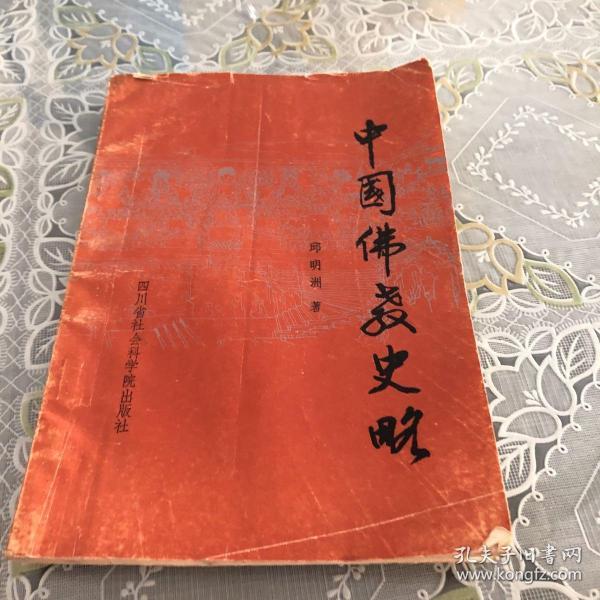 中國佛教史略
邱明洲 著
四川省社会科学院出版社
孔夫子旧书网
www.kongfz.com